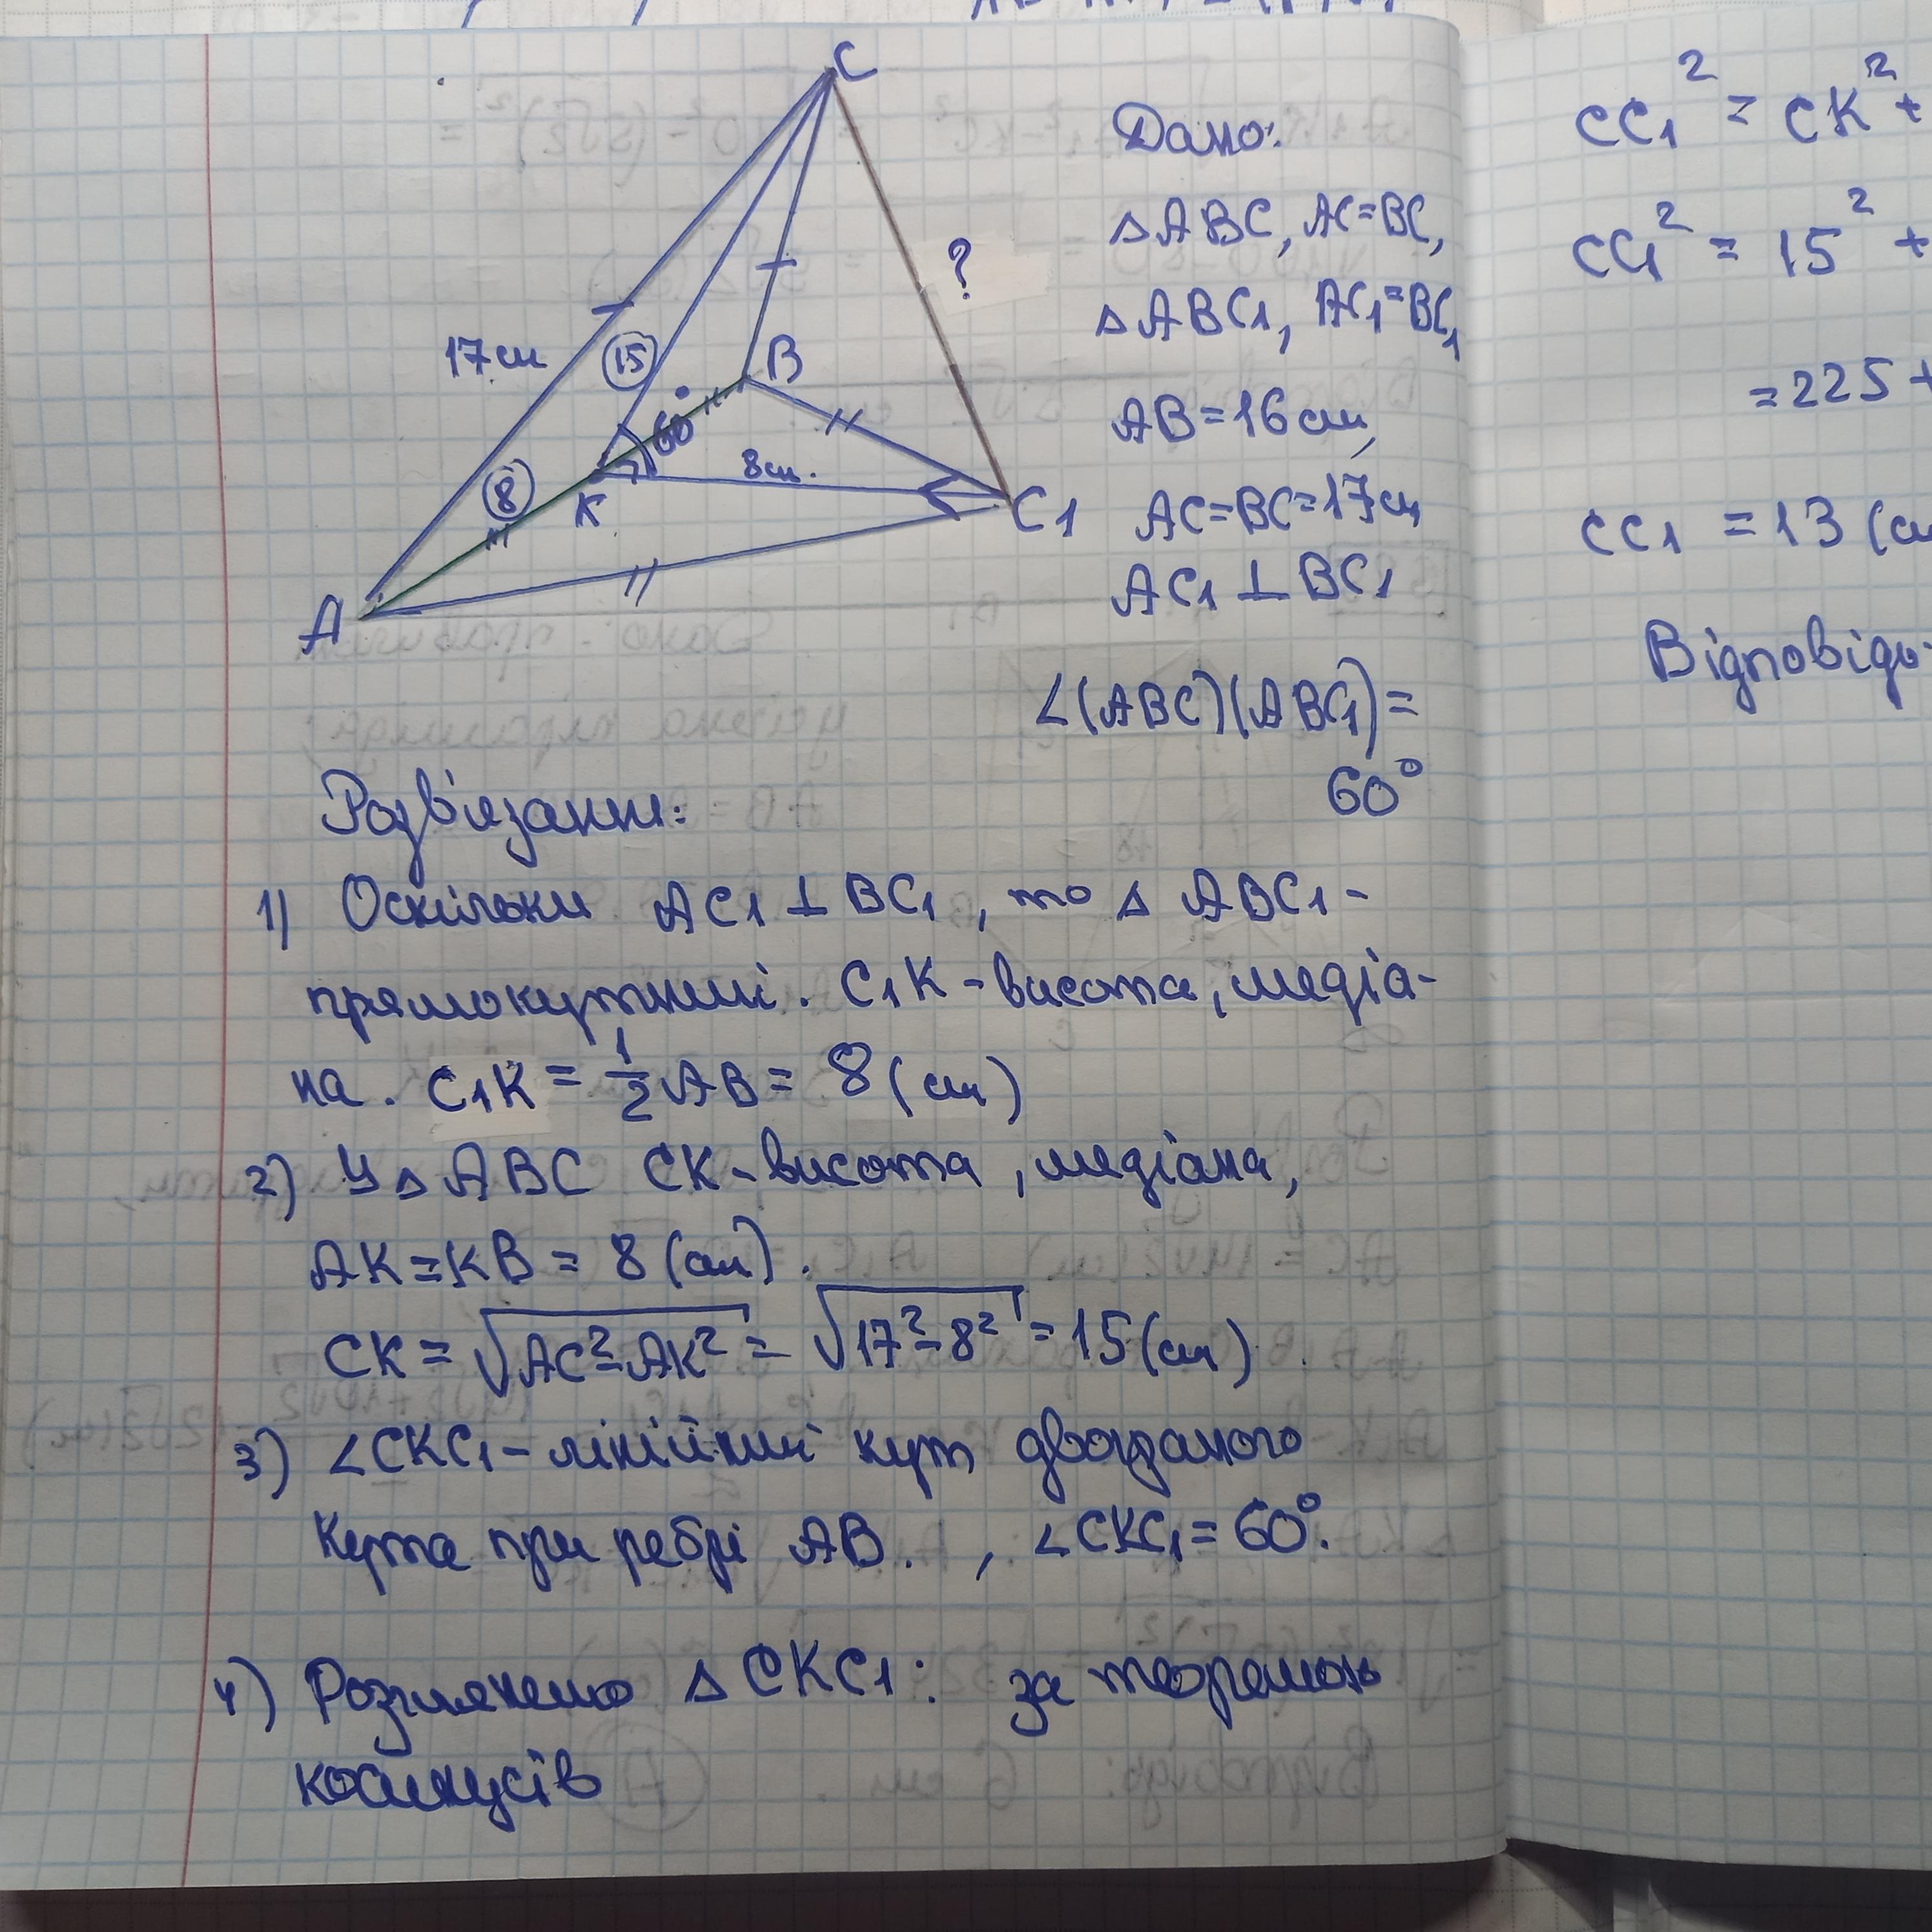 C
Дано:
△ABC, AC=BC,
△ABC1, AC1=BC1
AB=16 см,
AC=BC=17см
AC1 ⊥ BC1
∠(ABC)(ABC1)=
60°
?
17см
15
B
60°
8
K
8см.
C1
A
Розв'язання:
1) Оскільки AC1 ⊥ BC1, то △ ABC1 -
прямокутний. C1K - висота, медіа-
на. C1K = 1/2 AB = 8 (см)
2) У △ ABC CK - висота, медіана,
AK = KB = 8 (см).
CK = √AC²-AK² = √17²-8² = 15 (см).
3) ∠CKC1 - лінійний кут двограного
кута при ребрі AB. , ∠CKC1 = 60°.
4) Розглянемо △ CKC1: за теоремою
косинусів
CC1² = CK² +
CC1² = 15² +
=225+
CC1 = 13 (с
Відповідь: